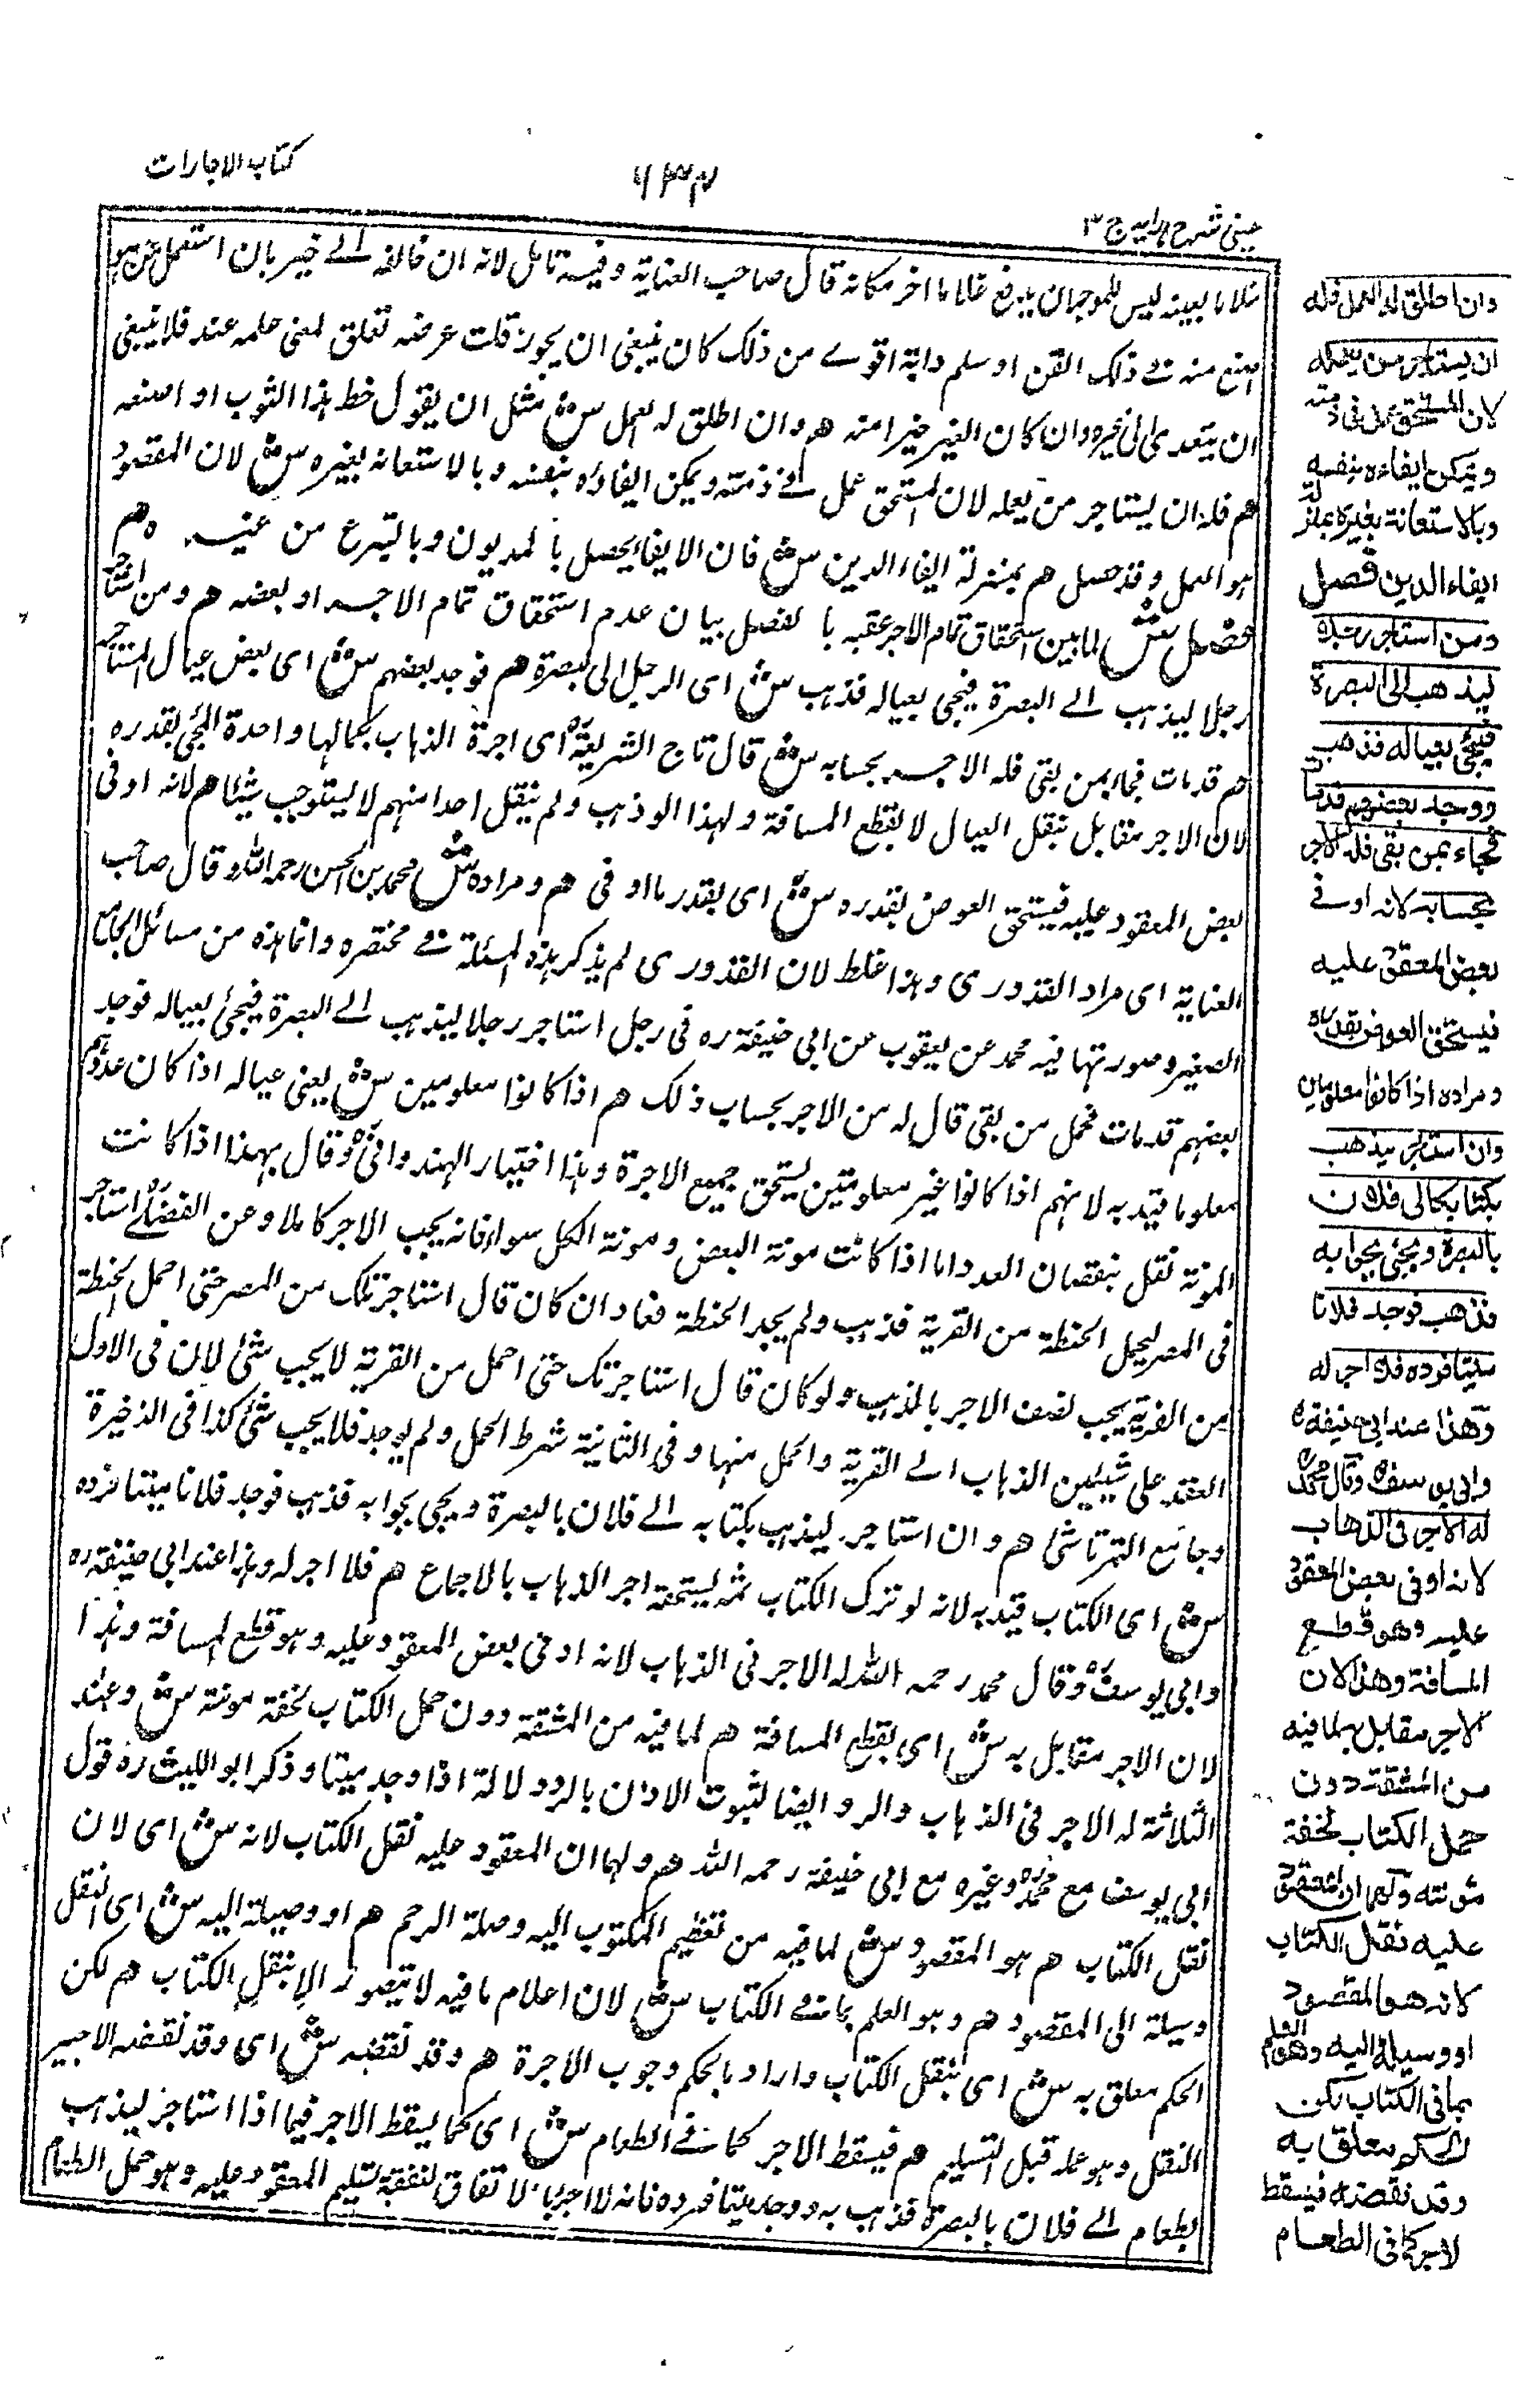 كتاب الاجارات
٦٣٧
عينى شرح هدايه ج ٣
غلاما بعينه ليس للموجران يدفع غلاما اخر مكانه قال صاحب العناية وفيه تامل لانه ان خالفه الے خير بان استعمل من هو
اصنع منه فے ذلك الفن او سلم دابة اقوے من ذلك كان ينبغى ان يجوز قلت غرضه تعلق لمعنى علمه عنده فلا ينبغى
ان يتعدى الى غيره وان كان الغير خيرا منه هم وان اطلق له العمل ش مثل ان يقول خط هذا الثوب او اصنعه
هم فله ان يستاجر من يعمله لان المستحق عمل فے ذمته ويمكن ايفاؤه بنفسه وبالاستعانه بغيره ش لان المقصود
هو العمل وقد حصل هم بمنزلة ايفاء الدين ش فان الايفاء يحصل بالمديون وبالتبرع من غيره هم
فصل ش لما بين استحقاق تمام الاجر عقبه بالفصل بيان عدم استحقاق تمام الاجر او بعضه هم ومن استاجر
رجلا ليذهب الے البصرة فيجى بعياله فذهب ش اى الرجل الى البصرة هم فوجد بعضهم ش اى بعض عيال المستاجر
هم قد مات فجاء بمن بقى فله الاجر بحسابه ش قال تاج الشريعة اى اجرة الذهاب بكمالها واحدة المجى بقدره
لان الاجر مقابل بنقل العيال لا بقطع المسافة ولهذا لو ذهب ولم ينقل احدا منهم لا يستوجب شيئا هم لانه اوفى
بعض المعقود عليه فيستحق العوض بقدره ش اى بقدر ما اوفى هم ومراده ش محمد بن الحسن رحمه الله وقال صاحب
العناية اى مراد القدورى وهذا غلط لان القدورى لم يذكر هذه المسئلة فے مختصره وانما هذه من مسائل الجامع
الصغير وصورتها فيه محمد عن يعقوب عن ابى حنيفة ره فى رجل استاجر رجلا ليذهب الے البصرة فيجئ بعياله فوجد
بعضهم قد مات فحمل من بقى قال له من الاجر بحساب ذلك هم اذا كانوا معلومين ش يعنى عياله اذا كان عددهم
معلوما قيد به لانهم اذا كانوا غير معلومين يستحق جميع الاجرة وهذا اختيار الهندوانى وقال بهذا اذا كانت
المونة تقل بنقصان العدد اما اذا كانت مونة البعض ومونة الكل سواء فانه يجب الاجر كاملا وعن الفضلے استاجر
فى المصر ليحمل الحنطة من القرية فذهب ولم يجد الحنطة فعاد ان كان قال استاجرتك من المصر حتى احمل الحنطة
من القرية يجب نصف الاجر بالذهب ولو كان قال استاجرتك حتى احمل من القرية لا يجب شئ لان فى الاول
العقد على شيئين الذهاب الے القرية والحمل منها وفى الثانية شرط الحمل ولم يوجد فلا يجب شئ كذا فى الذخيرة
وجامع التمرتاشى هم وان استاجر ليذهب بكتابه الے فلان بالبصرة ويجى بجوابه فذهب فوجد فلانا ميتا فرده
ش اى الكتاب قيد به لانه لو ترك الكتاب ثمه يستحق اجر الذهاب بالاجماع هم فلا اجر له وهذا عند ابى حنيفة ره
وابى يوسف وقال محمد رحمه الله له الاجر فى الذهاب لانه اوفى بعض المعقود عليه وهو قطع المسافة وهذا
لان الاجر مقابل به ش اى بقطع المسافة هم لما فيه من المشقة دون حمل الكتاب لخفة مونته ش وعند
الثلاثة له الاجر فى الذهاب والرد ايضا لثبوت الاذن بالرد دلالة اذا وجد ميتا وذكر ابو الليث ره قول
ابى يوسف مع محمد وغيره مع ابى حنيفة رحمه الله هم ولهما ان المعقود عليه نقل الكتاب لانه ش اى لان
نقل الكتاب هم هو المقصود ش لما فيه من تعظيم المكتوب اليه وصلة الرحم هم او وسيلة اليه ش اى النقل
وسيلة الى المقصود هم وهو العلم بما فے الكتاب ش لان اعلام ما فيه لا يتصور الا بنقل الكتاب هم لكن
الحكم معلق به ش اى بنقل الكتاب واراد بالحكم وجوب الاجرة هم وقد نقضه ش اى وقد نقضه الاجير
النقل وهو عمله قبل التسليم هم فيسقط الاجر كما فے الطعام ش اى كما يسقط الاجر فيما اذا استاجر ليذهب
بطعام الے فلان بالبصرة فذهب به ووجد ميتا فرده فانه لا اجر بالاتفاق لنقضه تسليم المعقود عليه وهو حمل الطعام
وان اطلق له العمل فله
ان يستاجر من يعمله
لان المستحق عمل فى ذمته
ويمكن ايفاءه بنفسه
وبالاستعانة بغيره بمنزلة
ايفاء الدين فصل
ومن استاجر رجلا
ليذهب الى البصرة
فيجئ بعياله فذهب
ووجد بعضهم قد مات
فجاء بمن بقى فله الاجر
بحسابه لانه اوفے
بعض المعقود عليه
فيستحق العوض بقدره
ومراده اذا كانوا معلومين
وان استاجر ليذهب
بكتابه الى فلان
بالبصرة ويجئ بجوابه
فذهب فوجد فلانا
ميتا فرده فلا اجر له
وهذا عند ابى حنيفة ره
وابى يوسف وقال محمد
له الاجر فى الذهاب
لانه اوفى بعض المعقود
عليه وهو قطع
المسافة وهذا لان
الاجر مقابل به لما فيه
من المشقة دون
حمل الكتاب لخفة
مئونته ولهما ان المعقود
عليه نقل الكتاب
لانه هو المقصود
او وسيلة اليه وهو العلم
بما فى الكتاب لكن
الحكم معلق به
وقد نقضه فيسقط
الاجر كما فى الطعام